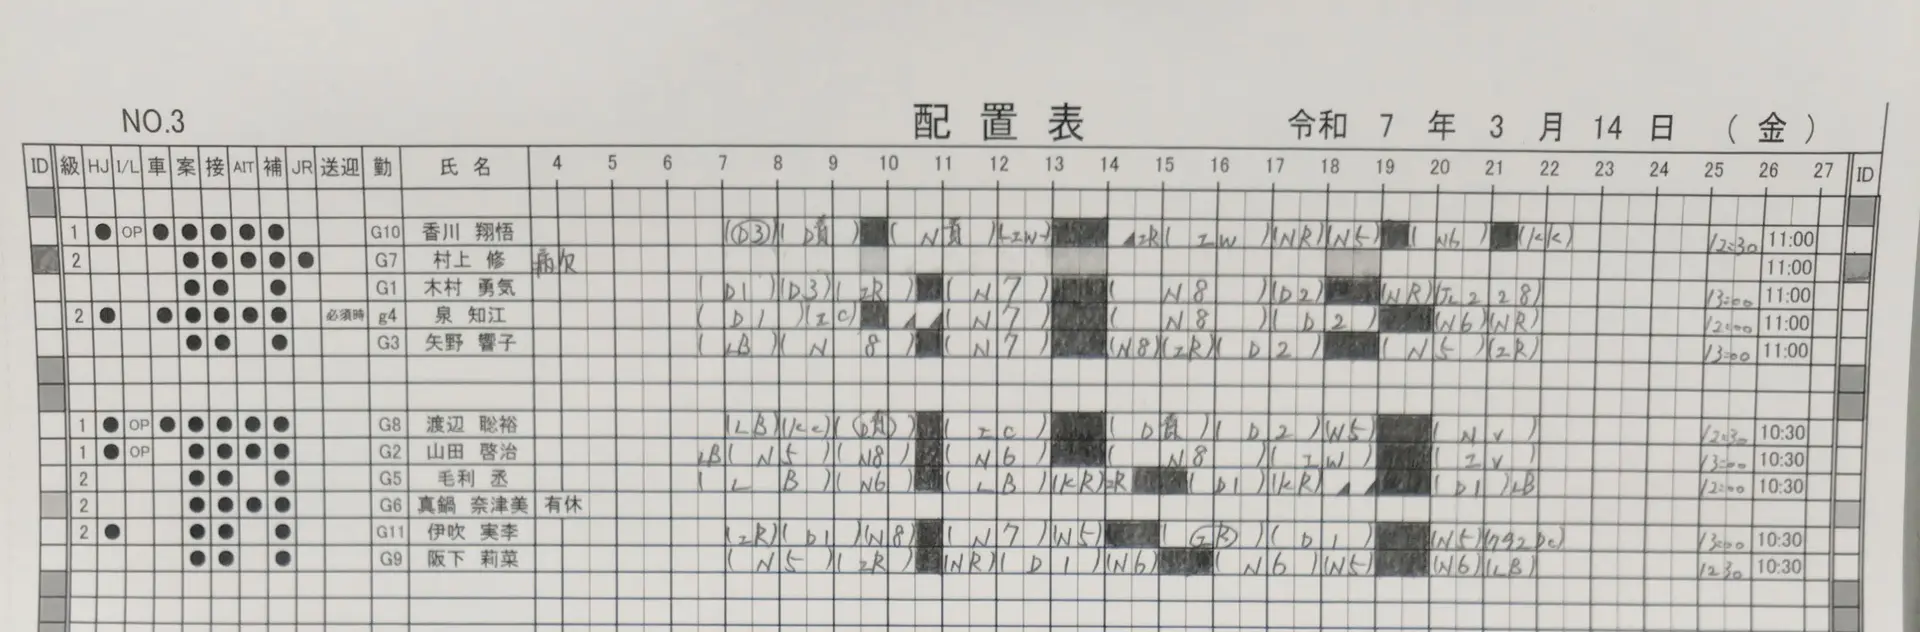 NO.3 配置表 令和 7 年 3 月 14 日 (金)
ID 級 HJ I/L 車 案 接 AIT 補 JR 送迎 勤 氏名 4 5 6 7 8 9 10 11 12 13 14 15 16 17 18 19 20 21 22 23 24 25 26 27 ID
1 ● OP ● ● ● ● ● G10 香川 翔悟 (D3) (D責) (N責) (IW) IR (IW) (NR) (N5) (N6) (KK) 12:30 11:00
2 ● ● ● ● ● G7 村上 修 病欠 11:00
● ● ● G1 木村 勇気 (D1) (D3) (IR) (N7) (N8) (D2) (NR) 13:00 11:00
2 ● ● ● ● ● ● 必須時 g4 泉 知江 (D1) (IC) (N7) (N8) (D2) (N6) (NR) 12:00 11:00
● ● ● G3 矢野 響子 (LB) (N8) (N7) (N8) (IR) (D2) (N5) (IR) 13:00 11:00
1 ● OP ● ● ● ● ● G8 渡辺 聡裕 (LB) (KC) (D責) (IC) (D責) (D2) (N5) (NV) 12:30 10:30
1 ● OP ● ● ● ● G2 山田 啓治 LB (N5) (N8) (N6) (N8) (IW) (IV) 13:00 10:30
2 ● ● ● G5 毛利 丞 (LB) (N6) (LB) (KR) IR (D1) (KR) (D1) LB 12:00 10:30
2 ● ● ● ● G6 真鍋 奈津美 有休
2 ● ● ● ● G11 伊吹 実李 (IR) (D1) (N8) (N7) (N5) (IR) (D1) (N5) 13:00 10:30
● ● ● G9 阪下 莉菜 (N5) (IR) (NR) (D1) (N6) (N6) (N5) (N6) (LB) 12:30 10:30